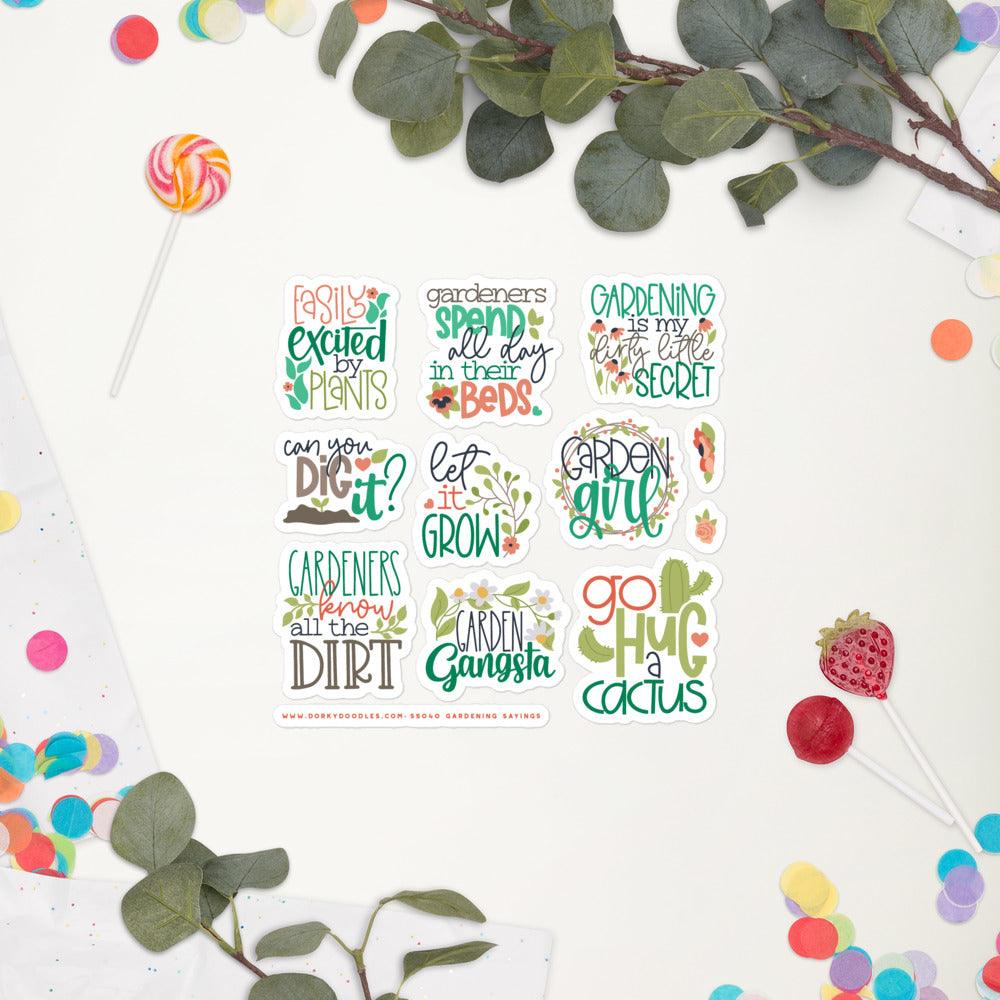 EASILY
excited
by
PLANTS
gardeners
spend
all day
in their
BEDS.
GARDENING
is my
dirty little
SECRET
can you
DIG
it?
let
it
GROW
GARDEN
girl
GARDENERS
know
all the
DIRT
GARDEN
Gangsta
go
HUG
a
cactus
WWW.DORKYDOODLES.COM- SS040 GARDENING SAYINGS